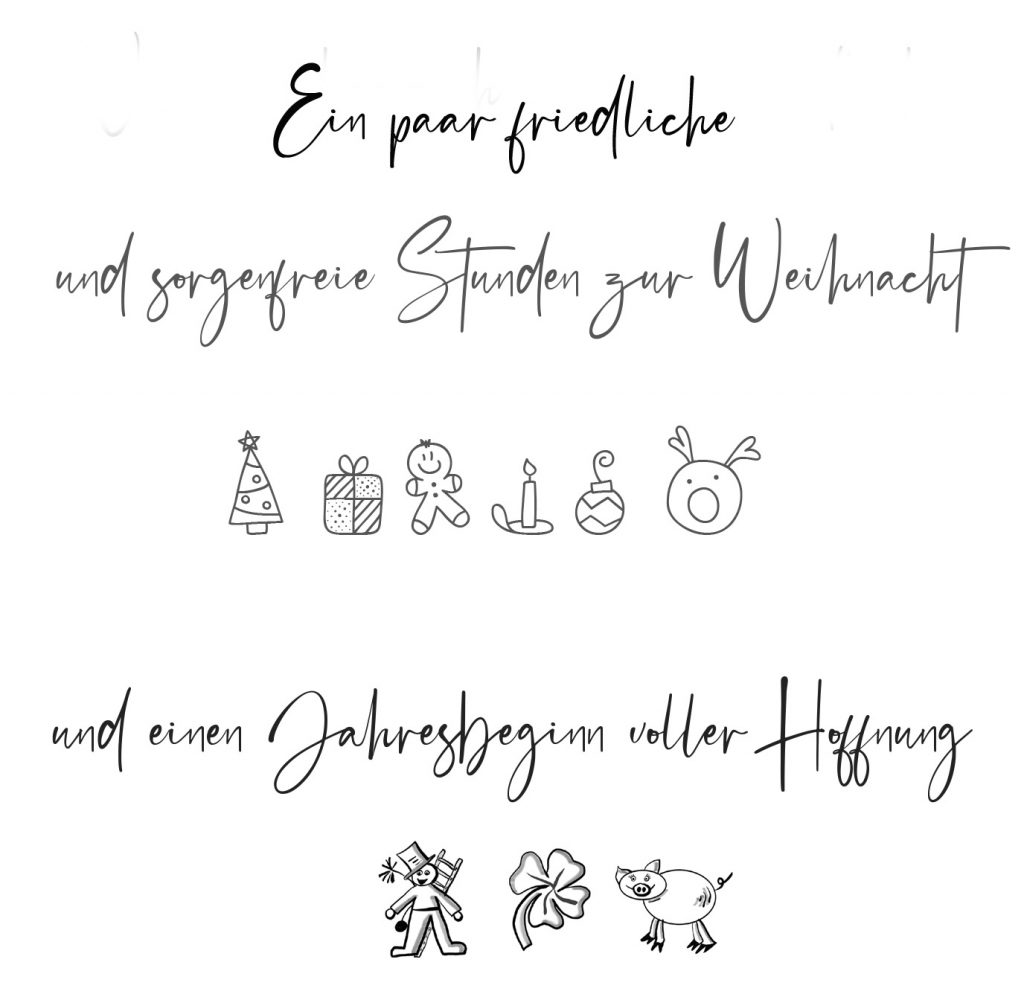 Ein paar friedliche
und sorgenfreie Stunden zur Weihnacht
und einen Jahresbeginn voller Hoffnung